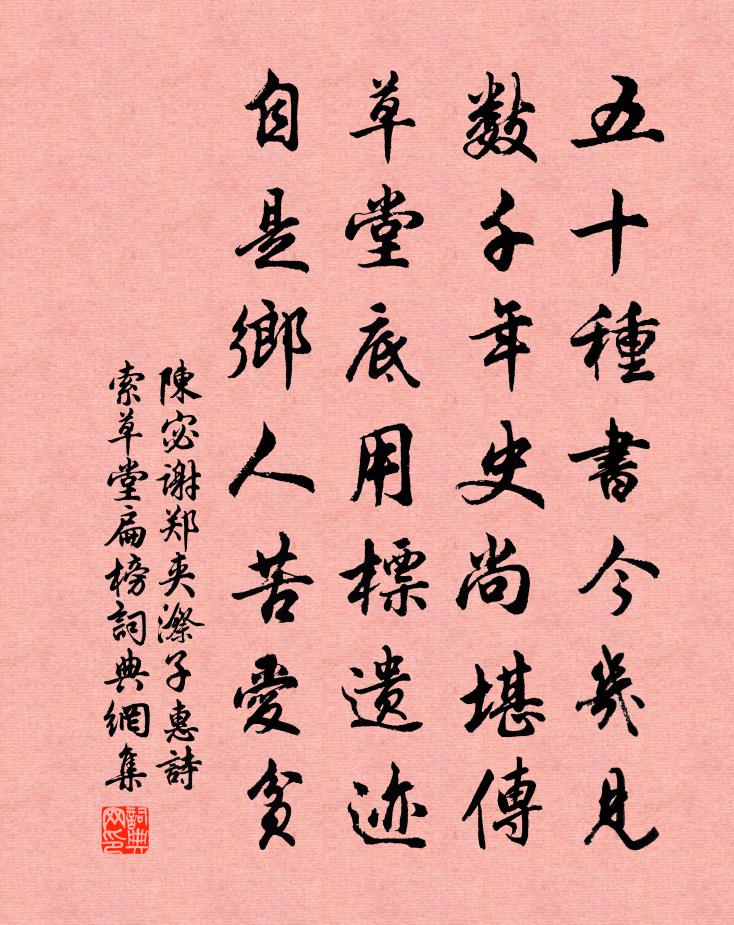 五十種書今幾見
數千年史尚堪傳
草堂底用標遺迹
自是鄉人苦愛貧
陳宓谢郑夹漈子惠詩
索草堂扁榜詞典網集
詞典网印